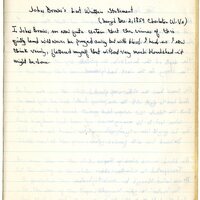 John Brown's Last Written Statement.
(Hung Dec 2, 1859 Charleston, W. Va)
I John Brown, am now quite certain that the crimes of this
guilty land will never be purged away but with blood. I had as I now
think vainly, flattered myself that without very much bloodshed it
might be done